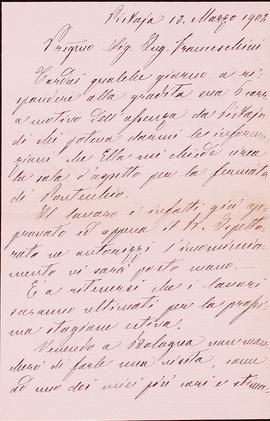 Pistoja 10. Marzo 1902
Pregmo Sig. Ing. Franceschini
Tardai qualche giorno a ri-
spondere alla gradita sua 
a motivo dell'assenza da Pistoja
di chi poteva darmi le informa-
zioni che Ella mi chiede circa
la sala d'aspetto per la fermata
di Pontecchio.
Il lavoro è infatti già ap-
provato ed appena il R. Ispetto-
rato ne autorizzi l'incomincia-
mento vi sarà posto mano. —
È a ritenersi che i lavori
saranno ultimati per la prossi-
ma stagione estiva.
Venendo a Bologna non man-
cherò di farle una visita, come
ad uno dei miei più cari e stima-